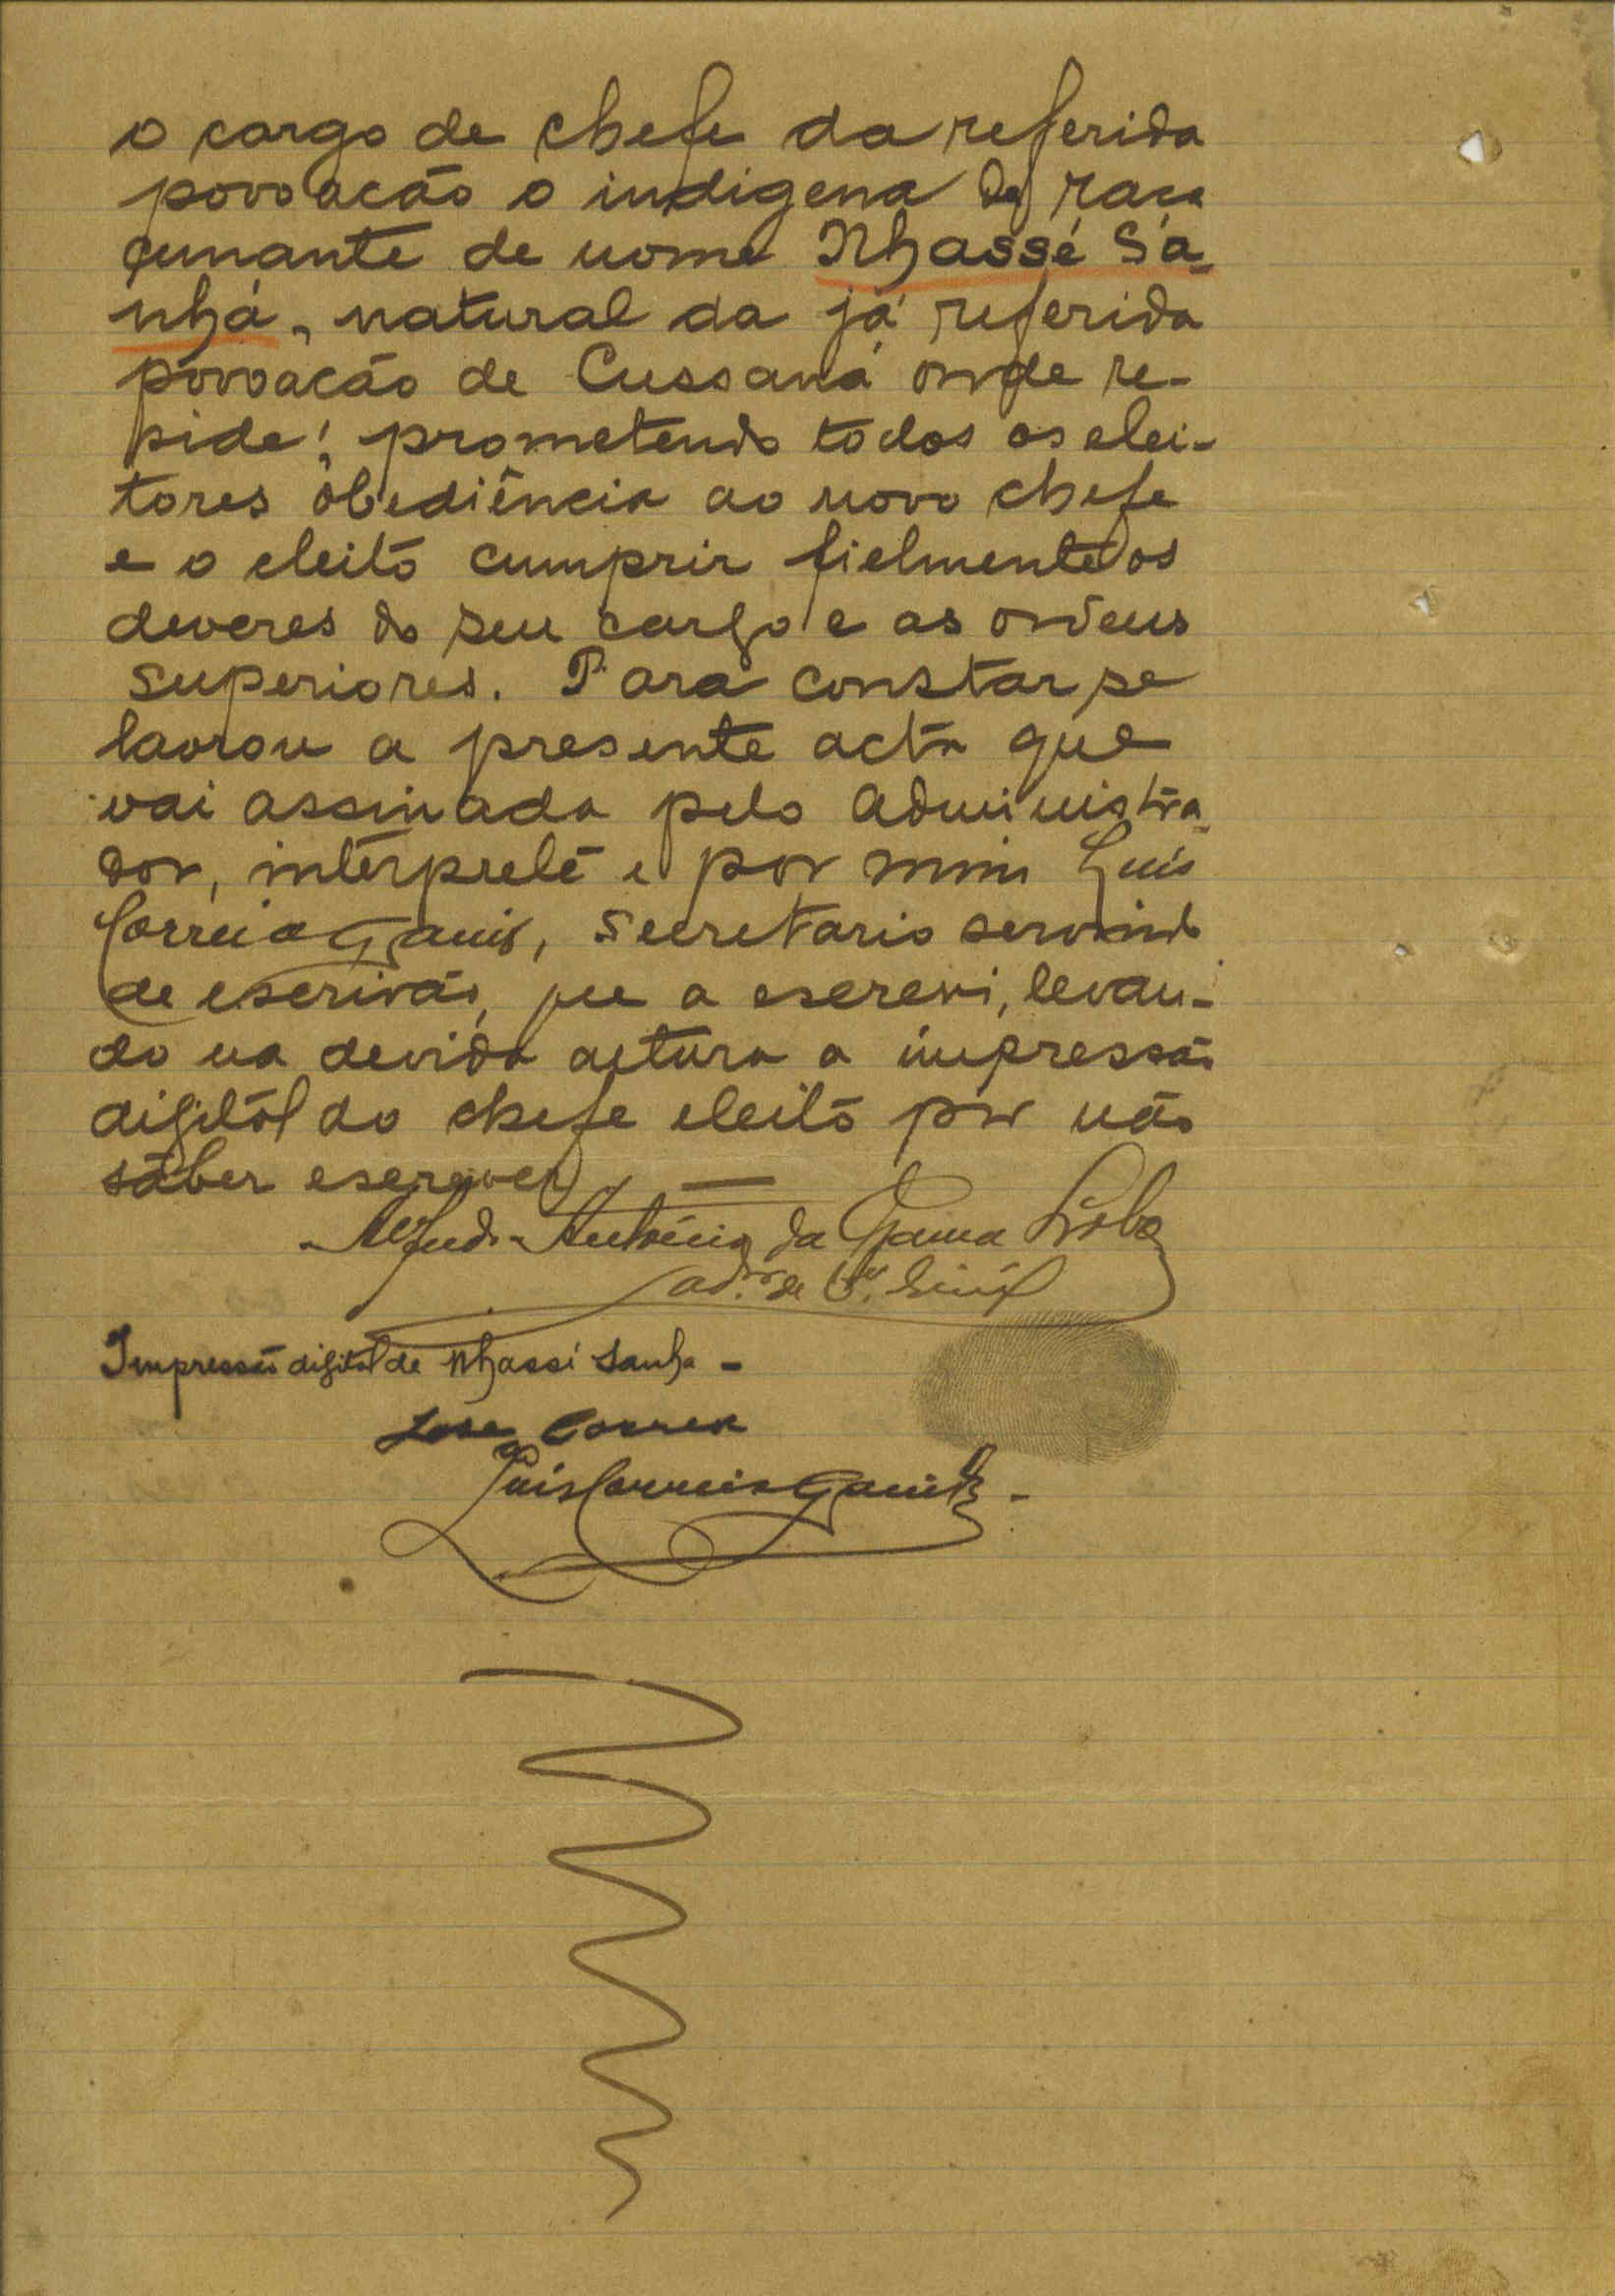 o cargo de chefe da referida
povoacão o indigena da raça
çunante de nome Nhassé Sa-
nhá, natural da já referida
povoacão de Cussaná onde re-
side; prometendo todos os elei-
tores obediência ao novo chefe
e o eleito cumprir fielmente os
deveres do seu cargo e as ordens
superiores. Para constar se
lavrou a presente acta que
vai assinada pelo Administra-
dor, intérprete e por mim Luís
Correia, secretario servindo
de escrivão, que a escrevi, levan-
do na devida altura a impressão
digital do chefe eleito por não
saber escrever. —
António da Gama Lobo
Impressão digital de Nhassi Sanha -
Jose Correa
Luis Correia